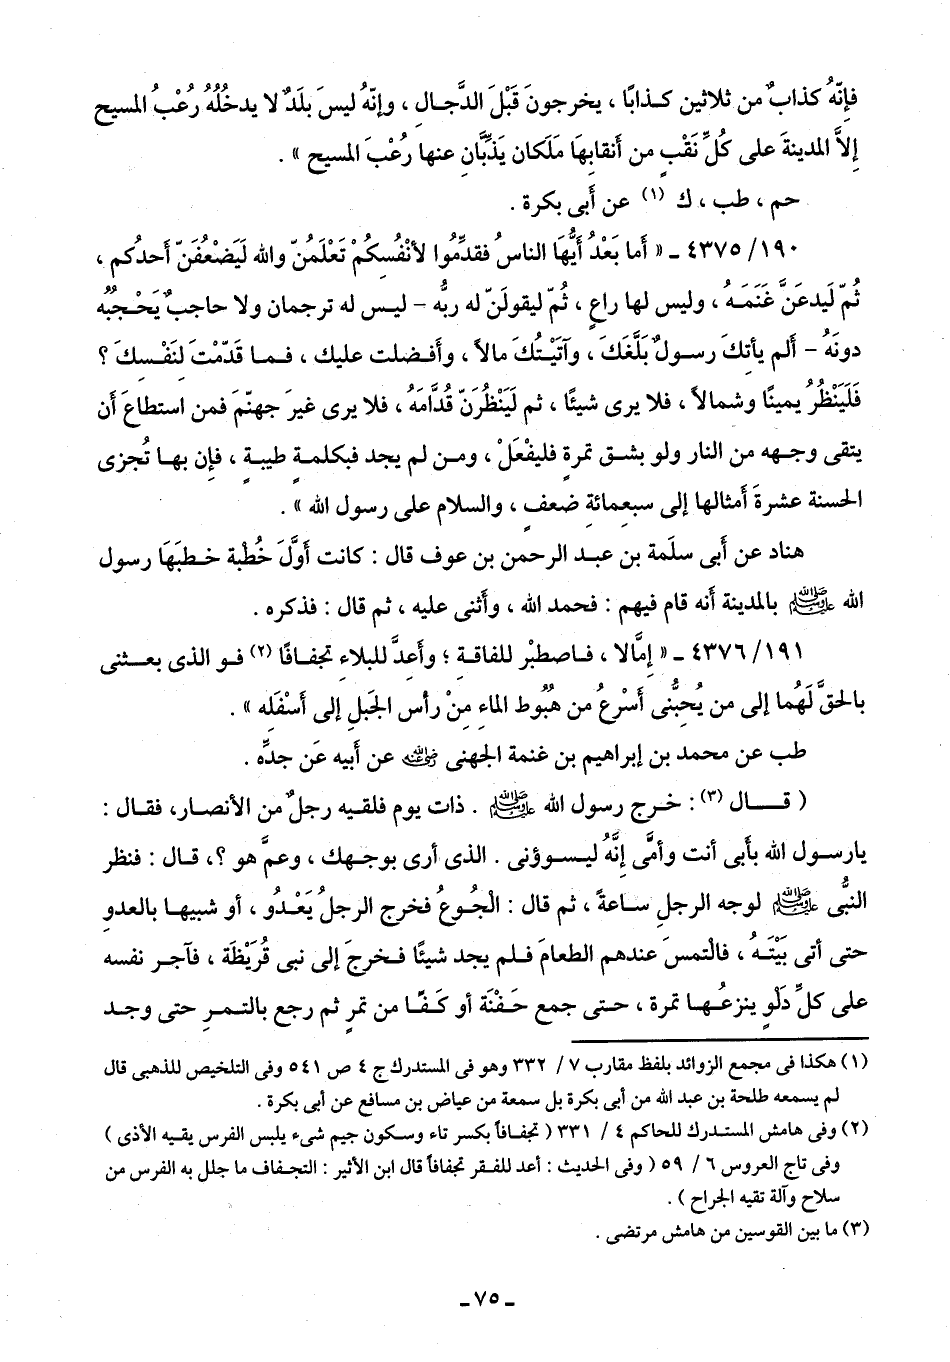 فإنّهُ كذابٌ من ثلاثين كـذابًا ، يخرجونَ قَبْلَ الدَّجال ، وإنّهُ ليسَ بلَدٌ لا يدخُلُهُ رُعْبُ المسيح
إلاَّ المدينةَ على كُلِّ نَقْبٍ من أنقابِهَا مَلَكان يَذبَّانِ عنها رُعْبَ المسيحِ » .
حم ، طب ، ك (١) عن أبى بكرة .
١٩٠/ ٤٣٧٥ ـ « أما بَعْدُ أيُّهَا الناسُ فقدِّمُوا لأنْفُسِكُمْ تَعْلَمُنّ والله لَيَضْعُفَنّ أحدكم ،
ثُمّ لَيدعَنَّ غَنَمَـهُ ، وليس لها راعٍ ، ثُمّ ليقولَنّ له ربُّه – ليس له ترجمان ولا حاجبٌ يَحْجِبُهُ
دونَهُ – ألم يأتكَ رسولٌ بَلَّغَكَ ، وآتَيْتُكَ مالاً ، وأفضلت عليك ، فـما قدّمْتَ لنَفْسِكَ ؟
فَلَيَنْظُرُ يمينًا وشمالاً ، فلا يرى شيئًا ، ثم لَيَنْظُرَنّ قُدَّامَهُ ، فلا يرى غيرَ جهنّمَ فمن استطاعَ أن
يتقى وجـهه من النار ولو بشـق تمرة فليفْعَلْ ، ومـن لم يجد فبكلمـةٍ طيبةٍ ، فإن بهـا تُجزى
الحسنة عشرةَ أمثالها إلى سبعمائةِ ضعفٍ ، والسلام على رسول الله » .
هناد عن أبى سلَمة بن عبد الرحمن بن عوف قال : كانت أوَّلَ خُطْبة خـطبَهَا رسول
الله ﷺ بالمدينة أنه قام فيهم : فحمد الله ، وأثنى عليه ، ثم قال : فذكره .
١٩١/ ٤٣٧٦ ـ « إمَّالا ، فـاصطبْر للفاقـة ؛ وأعدَّ للبلاءِ تجفـافًا (٢) فـو الذى بعـثنى
بالحقِّ لَهُما إلى من يُحبُّنى أسْرعُ من هبُوط الماءِ منْ رأس الجَبلِ إلى أسْفَله » .
طب عن محمد بن إبراهيم بن غنمة الجهنى رضي الله عنه عن أبيه عَن جدِّه .
( قـــال (٣) : خـرج رسول الله ﷺ . ذات يوم فلقيـه رجلٌ من الأنصـار، فقـال :
يارسـول الله بأبى أنت وأمَّى إنَّهُ ليـسوؤنى . الذى أرى بوجـهك ، وعمَّ هو ؟، قـال : فنظر
النبُّى ﷺ لوجه الرجلِ سـاعةً ، ثم قال : الْجُـوعُ فخرج الرجلُ يَعْدُو ، أو شبيهـا بالعدو
حتى أتى بَيْتَـهُ ، فالْتمسَ عندهم الطعامَ فـلم يجد شيئًا فـخرجَ إلى نبى قُرَيْظَة ، فآجر نفسه
على كلِّ دَلْوٍ ينزعُـهـا تمرة ، حـتى جمع حَفْنَة أو كَـفًا من تمرٍ ثم رجع بالتمـر حتى وجـد
(١) هكذا فى مجمع الزوائد بلفظ مقارب ٧/ ٣٣٢ وهو فى المستدرك ج ٤ ص ٥٤١ وفى التلخيص للذهبى قال
لم يسمعه طلحة بن عبد الله من أبى بكرة بل سمعة من عياض بن مسافع عن أبى بكرة .
(٢) وفى هامش المستدرك للحاكم ٤/ ٣٣١ ( تجفـافاً بكسر تاء وسكون جيم شىء يلبس الفرس يقيه الأذى )
وفى تاج العروس ٦/ ٥٩ ( وفى الحديث : أعد للفـقر تجفافاً قال ابن الأثير : التجـفاف ما جلل به الفرس من
سلاح وآلة تقيه الجراح ) .
(٣) ما بين القوسين من هامش مرتضى .
ـ ٧٥ ـ